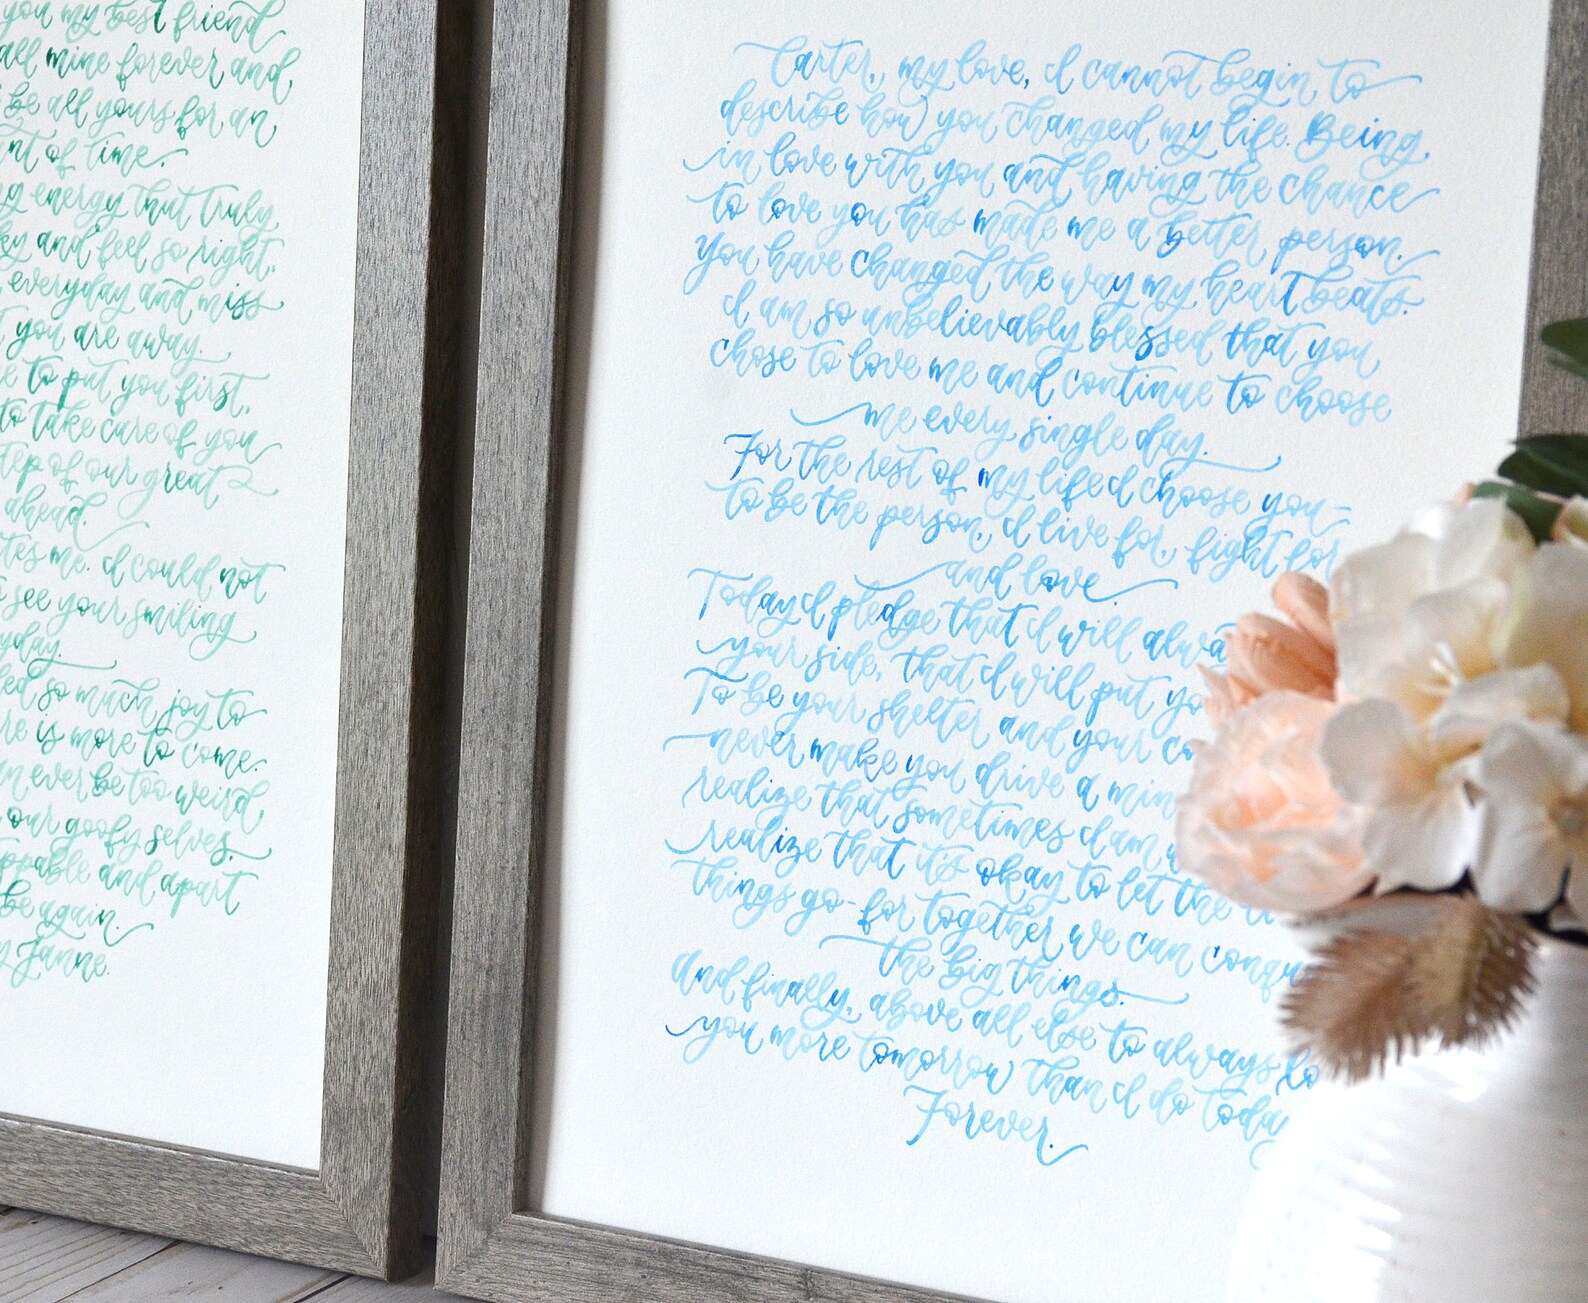 you my best friend
all mine forever and,
be all yours for an
of time.
energy that truly
and feel so right,
everyday and miss
you are away.
to put you first,
to take care of you
of our great
ahead.
me. I could not
see your smiling
so much joy to
is more to come.
ever be too weird,
our goofy selves.
and apart
be again.
Janne.
Carter, my love, I cannot begin to
describe how you changed my life. Being
in love with you and having the chance
to love you has made me a better person.
You have changed the way my heart beats.
I am so unbelievably blessed that you
chose to love me and continue to choose
me every single day.
For the rest of my life I choose you-
to be the person, I live for, fight for
and love.
Today I pledge that I will
your side, that I will put
To be your shelter and your
never make you drive a
realize that sometimes I am
realize that it's okay to let the
things go - for together we can
the big things.
and finally, above all else to always
you more tomorrow than I do
Forever.